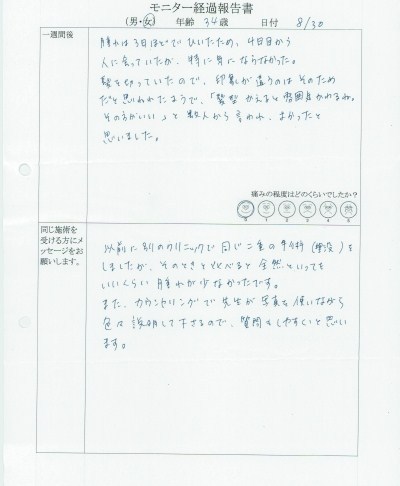 モニター経過報告書
(男・女) 年齢 34歳 日付 8/30
一週間後
腫れは3日ほどでひいたため、4日目から
人に会っていたが、特に気にならなかった。
髪を切っていたので、印象が違うのはそのため
だと思われたようで、「髪型かえると雰囲気かわるね。
その方がいい」と数人から言われ、よかったと
思いました。
痛みの程度はどのくらいでしたか？
0 1 2 3 4 5
同じ施術を
受ける方にメ
ッセージをお
願いします。
以前に別のクリニックで同じ二重の手術(埋没)を
しましたが、そのときとくらべると全然といっても
いいくらい腫れが少なかったです。
また、カウンセリングで先生が写真を使いながら
色々説明して下さるので、質問もしやすいと思い
ます。